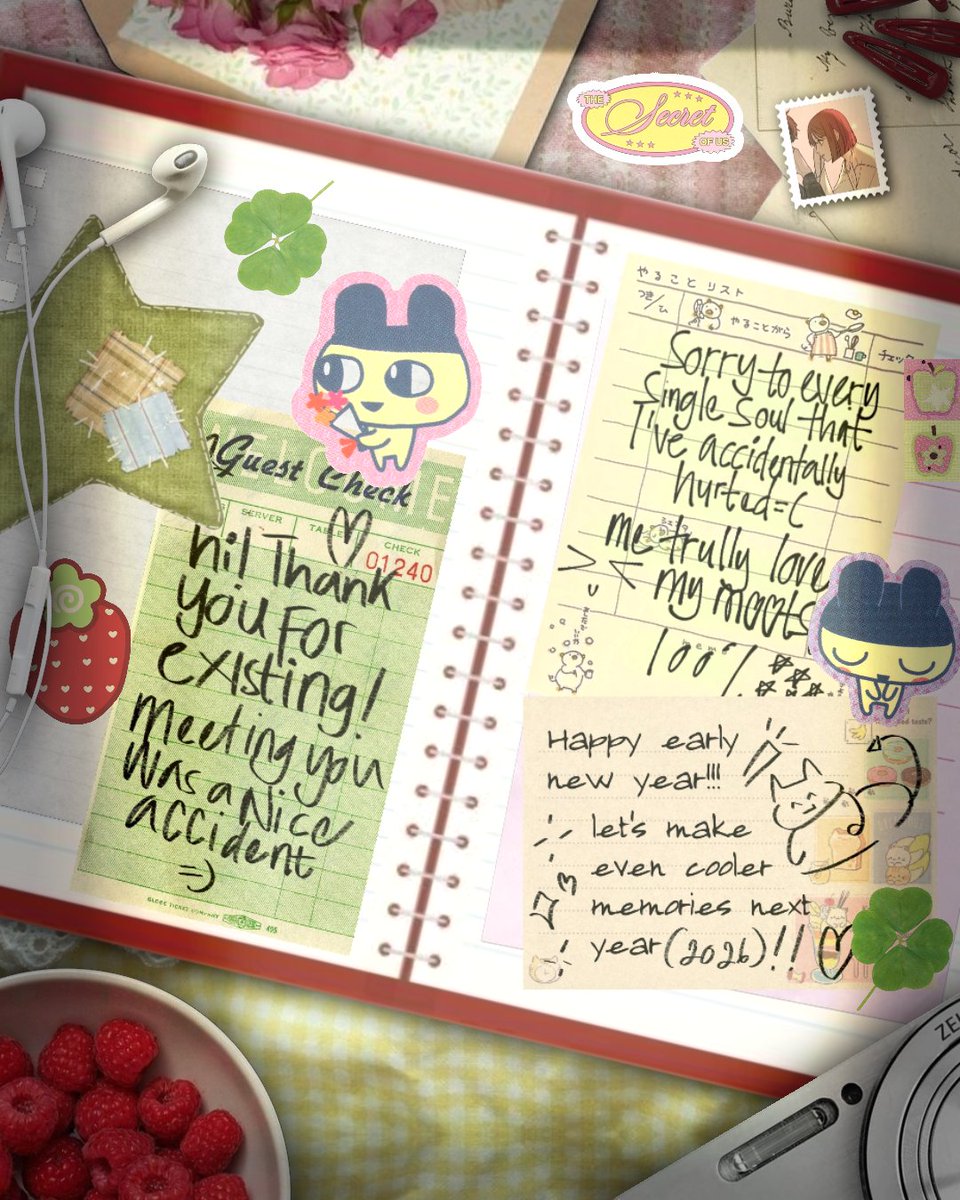 THE
Secret
OF US
Guest Check
SERVER
TABLE
CHECK
01240
hi! Thank
you For
existing!
Meeting you
Was a Nice
accident
=)
GLOBE TICKET COMPANY
495
やること リスト
つき/ひ
やることがら
チェック
Sorry to every
Single Soul that
I've accidentally
hurted=(
me trully love
my moots
100%
Happy early
new year!!!
let's make
even cooler
memories next
year (2026)!!
ZE